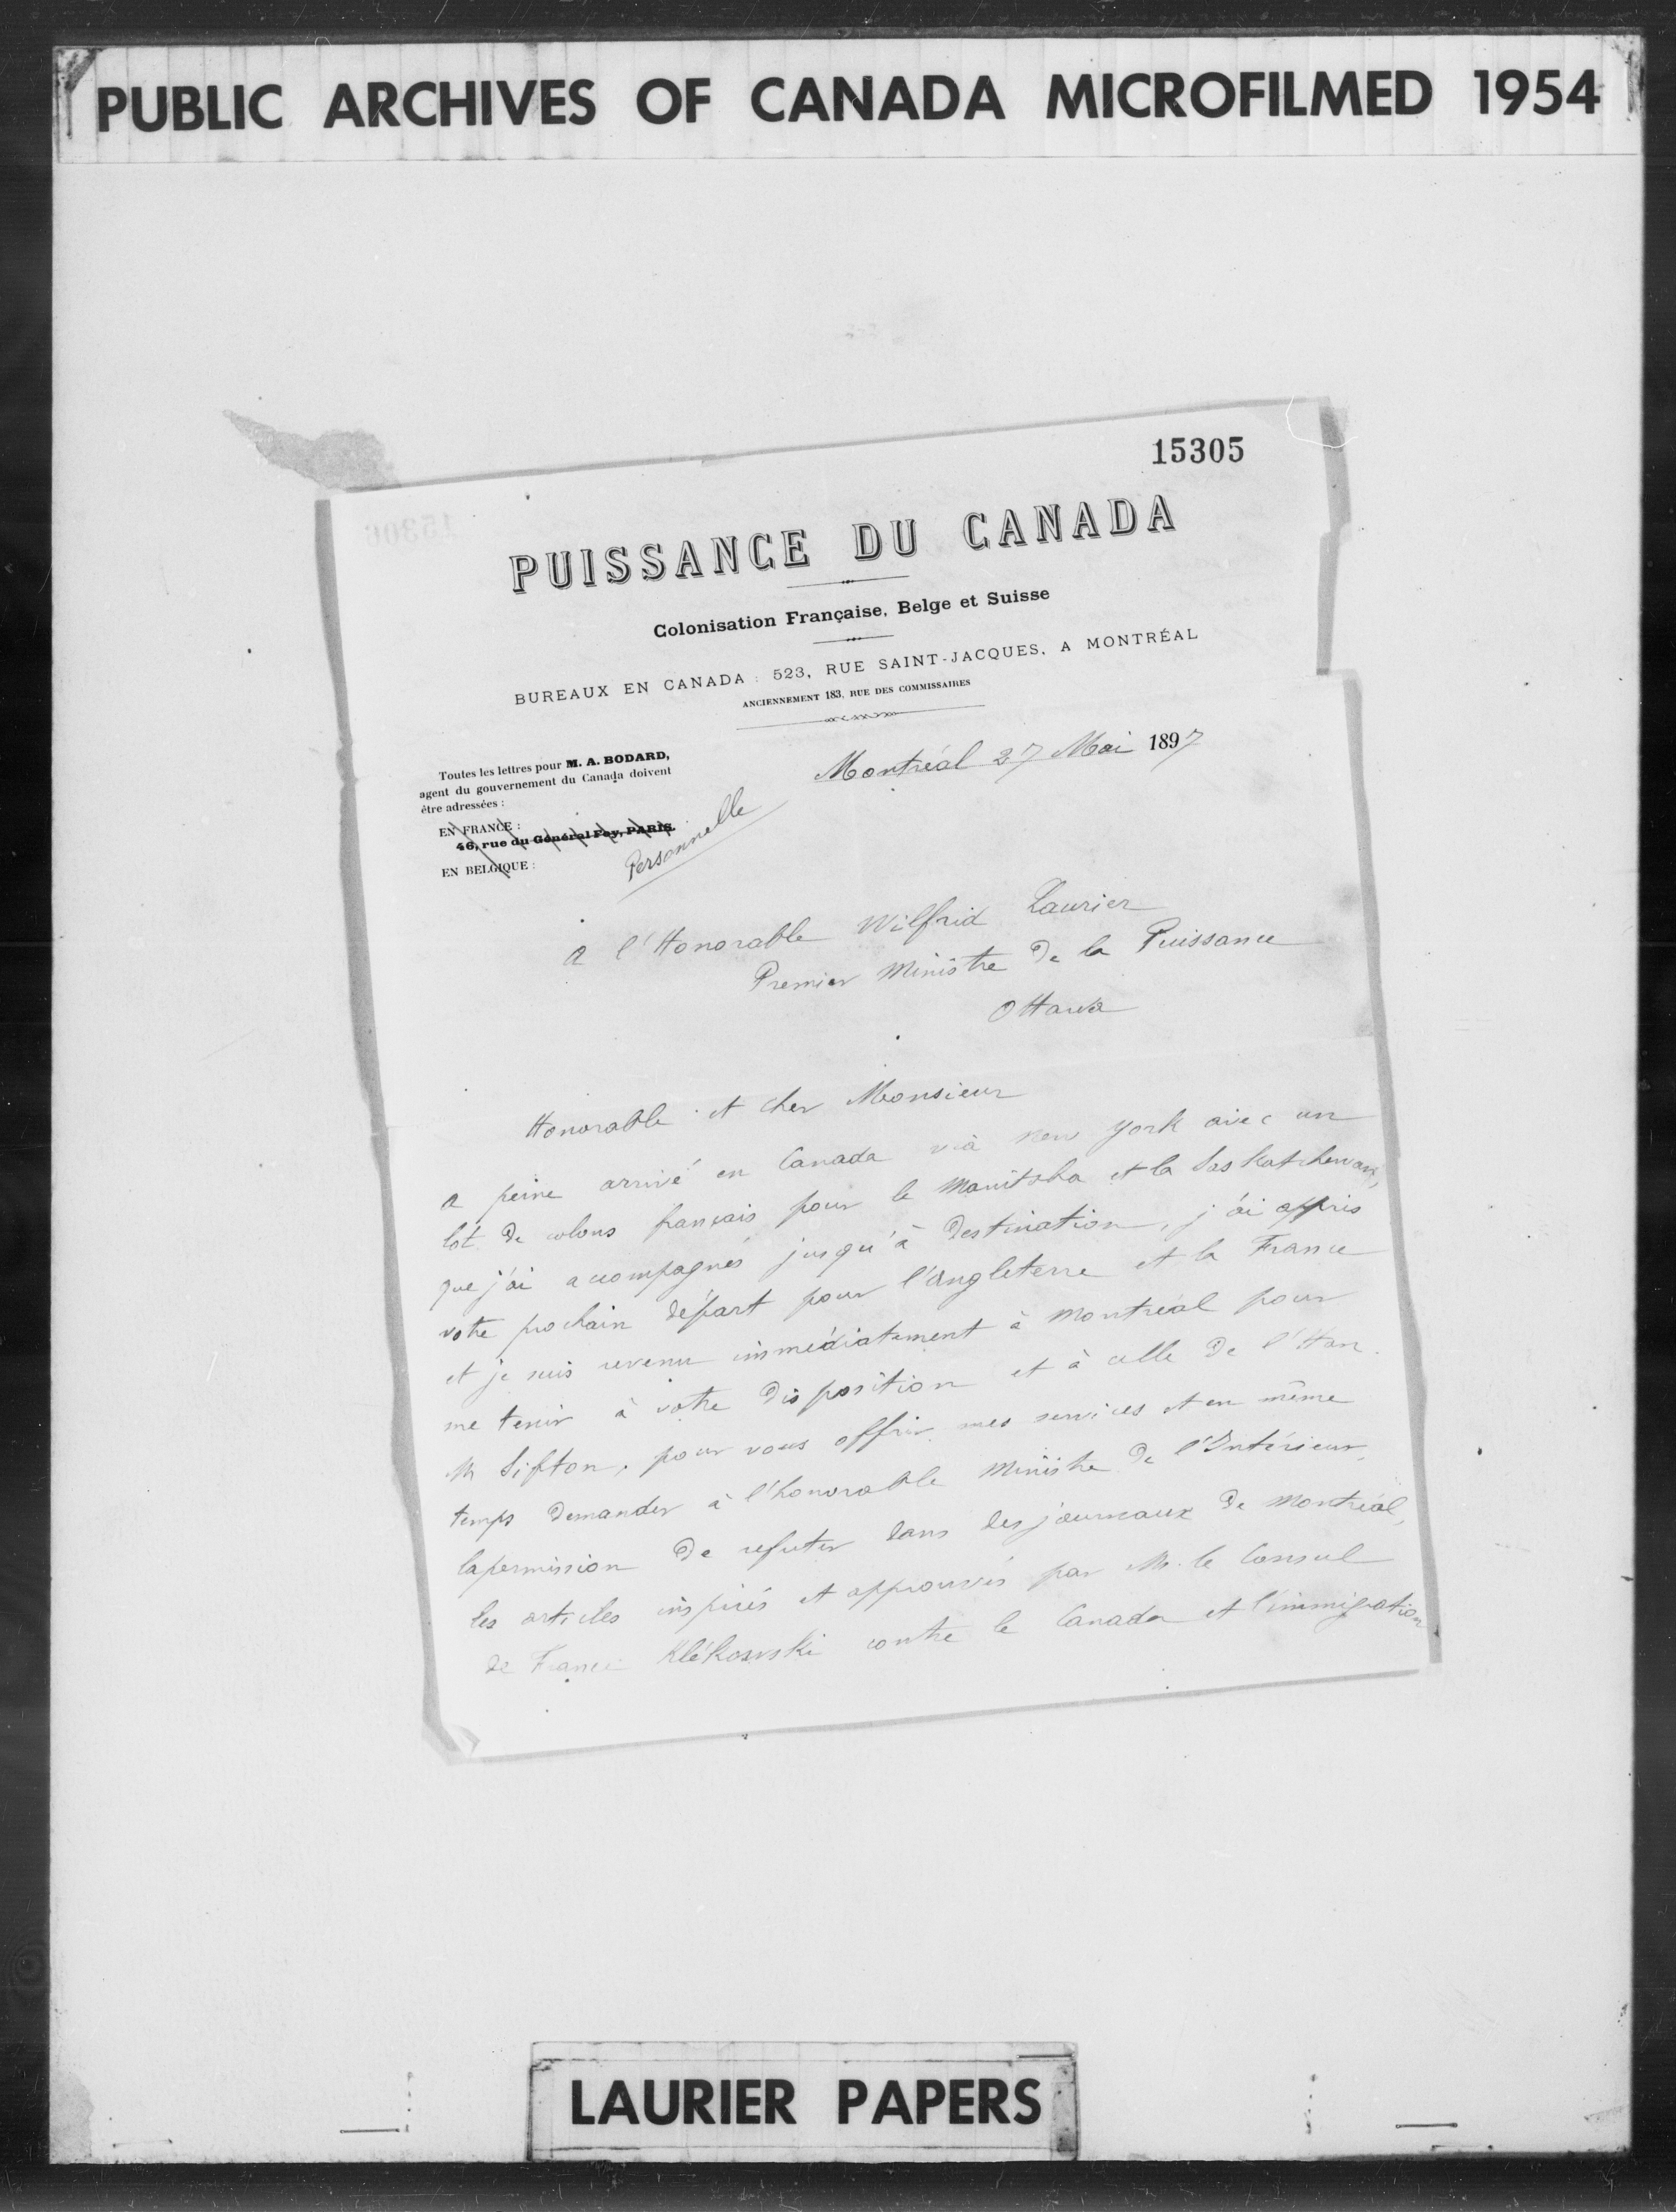 PUBLIC ARCHIVES OF CANADA MICROFILMED 1954
15305
PUISSANCE DU CANADA
Colonisation Française, Belge et Suisse
BUREAUX EN CANADA : 523, RUE SAINT-JACQUES, A MONTRÉAL
ANCIENNEMENT 183, RUE DES COMMISSAIRES
Toutes les lettres pour M. A. BODARD,
agent du gouvernement du Canada doivent
être adressées :
EN FRANCE :
46, rue du Général Foy, PARIS.
EN BELGIQUE :
Montréal 27 Mai 1897
Personnelle
A l'Honorable Wilfrid Laurier
Premier Ministre de la Puissance
Ottawa
Honorable et cher Monsieur
A peine arrivé en Canada viâ New York avec un
lot de colons français pour le Manitoba et la Saskatchewan,
que j'ai accompagnés jusqu'à destination, j'ai appris
votre prochain départ pour l'Angleterre et la France
et je suis revenu immédiatement à Montréal pour
me tenir à votre disposition et à celle de l'Hon.
M Sifton, pour vous offrir mes services et en même
temps demander à l'honorable Ministre de l'Intérieur,
la permission de refuter dans les journaux de Montréal,
les articles inspirés et approuvés par M. le Consul
de France Klékowski contre le Canada et l'immigration
LAURIER PAPERS